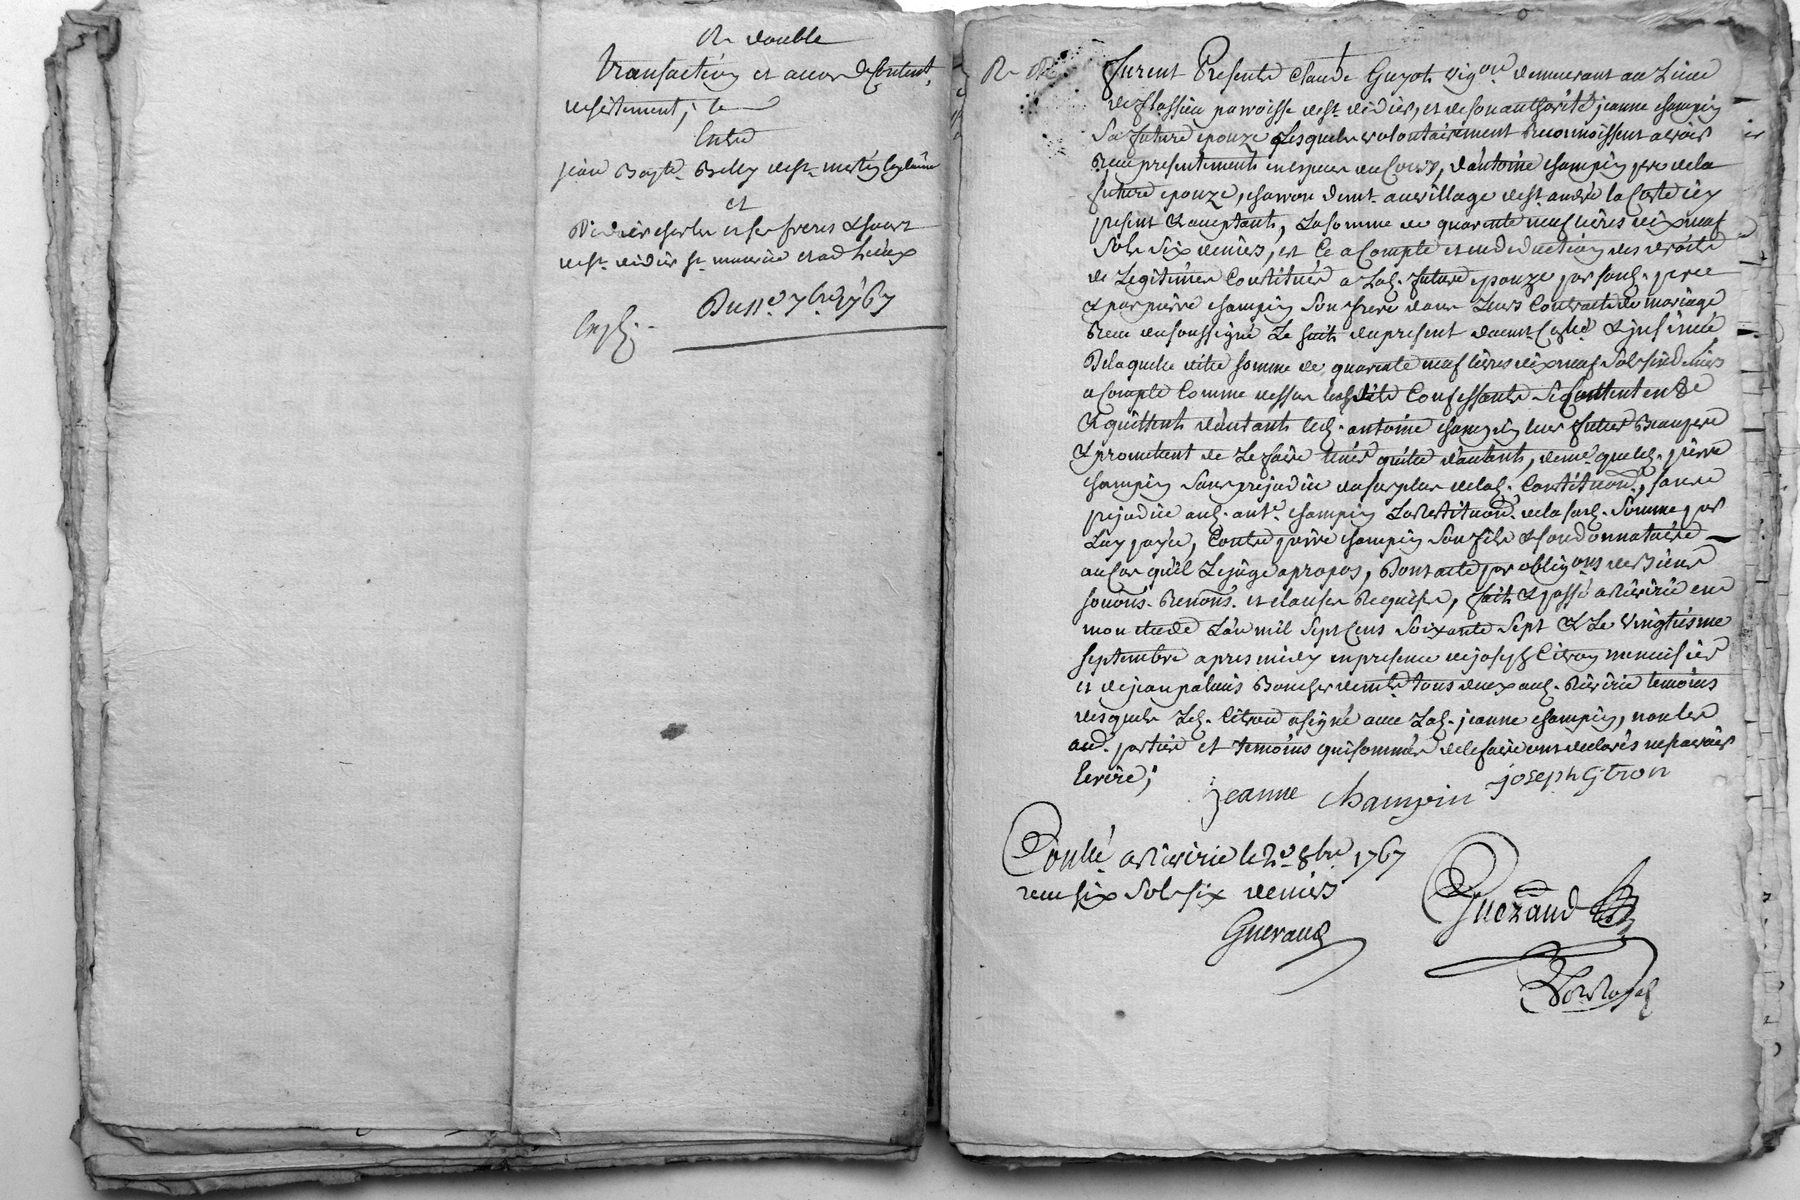 double
transaction et
desistement,
Entre
jean Bapte. Belly de st. martin
et
et ses freres & soeurs
de st. didier st. maurice et ad
Du 11e. 7bre. 1767
Furent Presents Claude Guyot vigon. demeurant au Lieu
de flossieu parroisse de st. didier, et de son authorité jeanne champin
sa future epouze lesquels volontairement Reconnoissent avoir
Receu presentement en especes du Cours, d'antoine champin pere de la
future epouze, demt. au village de st. andré la Coste icy
present & acceptant, La somme de quarente neuf livres dix neuf
sols six deniers, et Ce a Compte et en deduction des droits
de Legitimes Constitués a Lad. future epouze par sond. pere
& par pierre champin son frere dans Leurs Contracts de mariage
Receu du soussigné
De laquelle ditte somme de quarente neuf livres dix neuf sols six deniers
a Compte Comme dessus lesdits Confessants se Contentent
& quittent d'autant led. antoine champin leur futur Beaupere
& promettent de Le faire tenir quitte d'autant, de me. que led. pierre
champin sans prejudice du surplus de lad. Constituon., sans
prejudice aud. ante. champin La Restituon. de la susd. Somme par
Luy payée, Contre pierre champin son fils & son donnataire
au Cas qu'il Le juge apropos, Dont acte par obligons. de Biens
soumis. Renons. et clauses Requises, fait & passé a Riverie en
mon etude L'an mil Sept Cens Soixante Sept & Le Vingtiesme
septembre apres midy en presence de joseph Citron menuisier
et de jean palais Boucher demts. tous deux aud. Riverie temoins
desquels Led. Citron a signé avec Lad. jeanne champin, non les
aud. parties et temoins qui sommés de le faire ont declarés ne sçavoir
Ecrire;
jeanne champin joseph Citron
Conllé a Riverie le 2e. 8bre. 1767
receu six sols six deniers
Gueraud
Guezaud
Nore. Royal